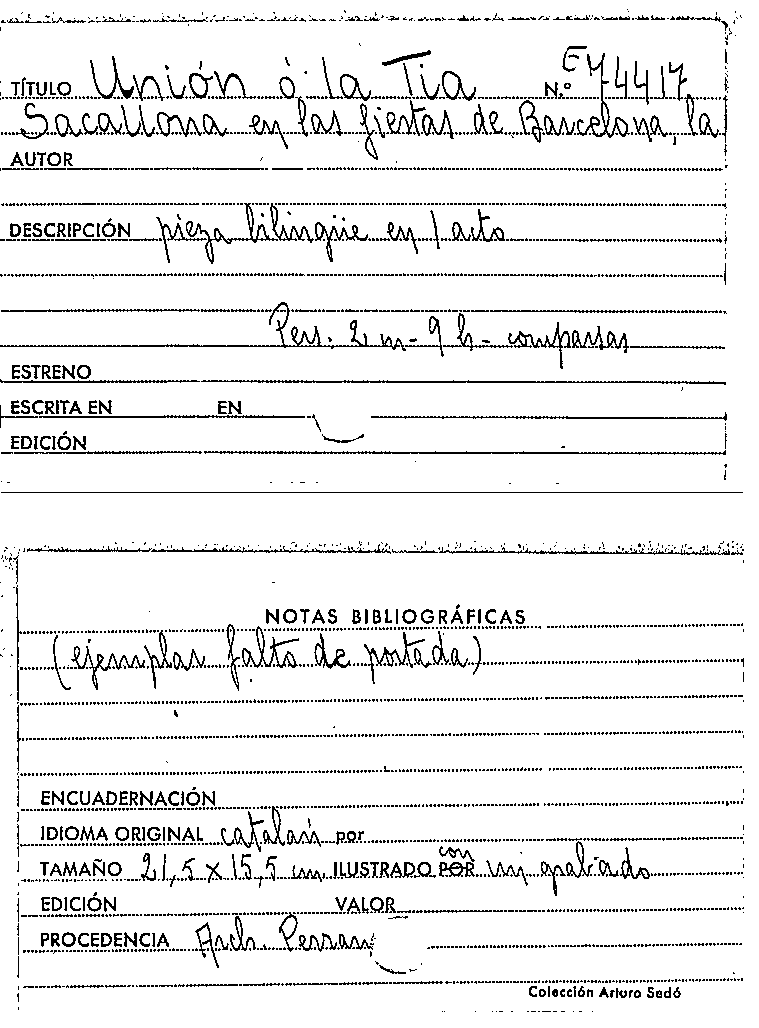 TÍTULO Unión ó la Tia N.º E 74417
Sacallona en las fiestas de Barcelona, la
AUTOR
DESCRIPCIÓN pieza bilingüe en 1 acto
Pers. 2 m - 9 h - comparsas
ESTRENO
ESCRITA EN EN
EDICIÓN
NOTAS BIBLIOGRÁFICAS
(ejemplar falto de portada)
ENCUADERNACIÓN
IDIOMA ORIGINAL catalán por
TAMAÑO 21,5 x 15,5 cm ILUSTRADO POR con un grabado
EDICIÓN VALOR
PROCEDENCIA Arch.
Colección Arturo Sedó